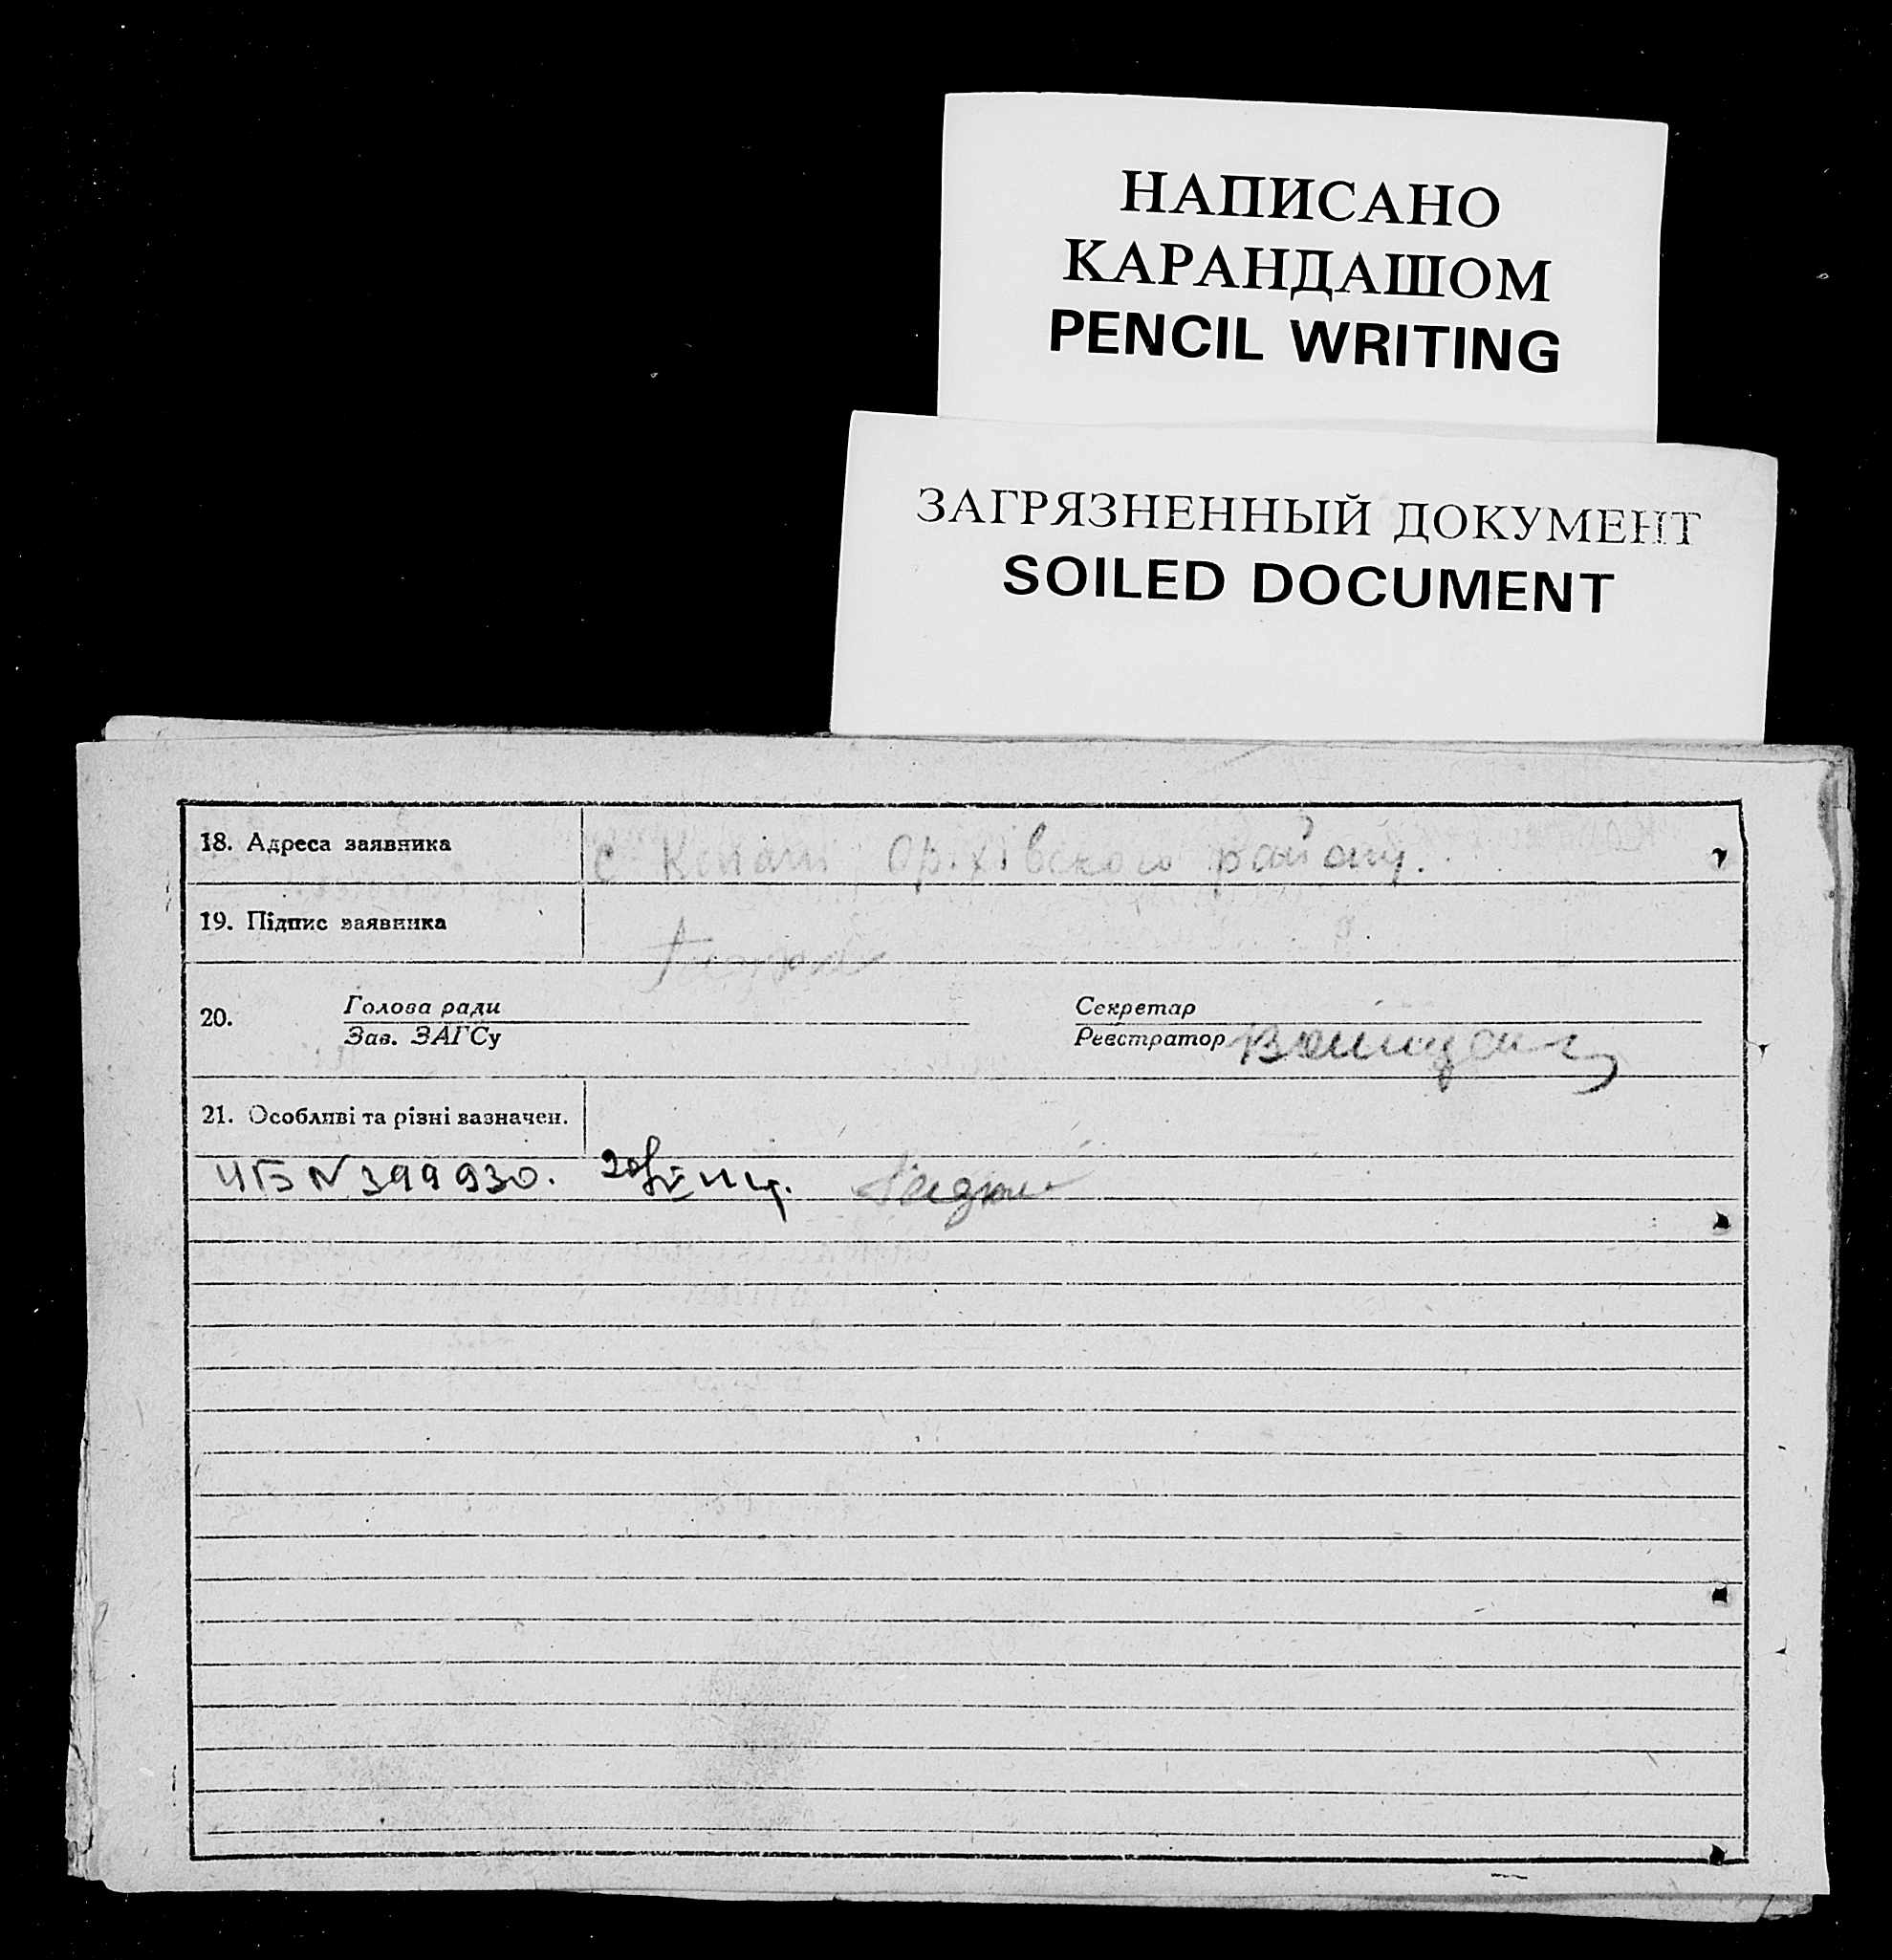 НАПИСАНО
КАРАНДАШОМ
PENCIL WRITING
ЗАГРЯЗНЕННЫЙ ДОКУМЕНТ
SOILED DOCUMENT
18. Адреса заявника с Копани Оріхівского району.
19. Підпис заявника
20. Голова ради Секретар
Зав. ЗАГСу Реєстратор
21. Особливі та різні зазначен.
ЧБ N 399930.